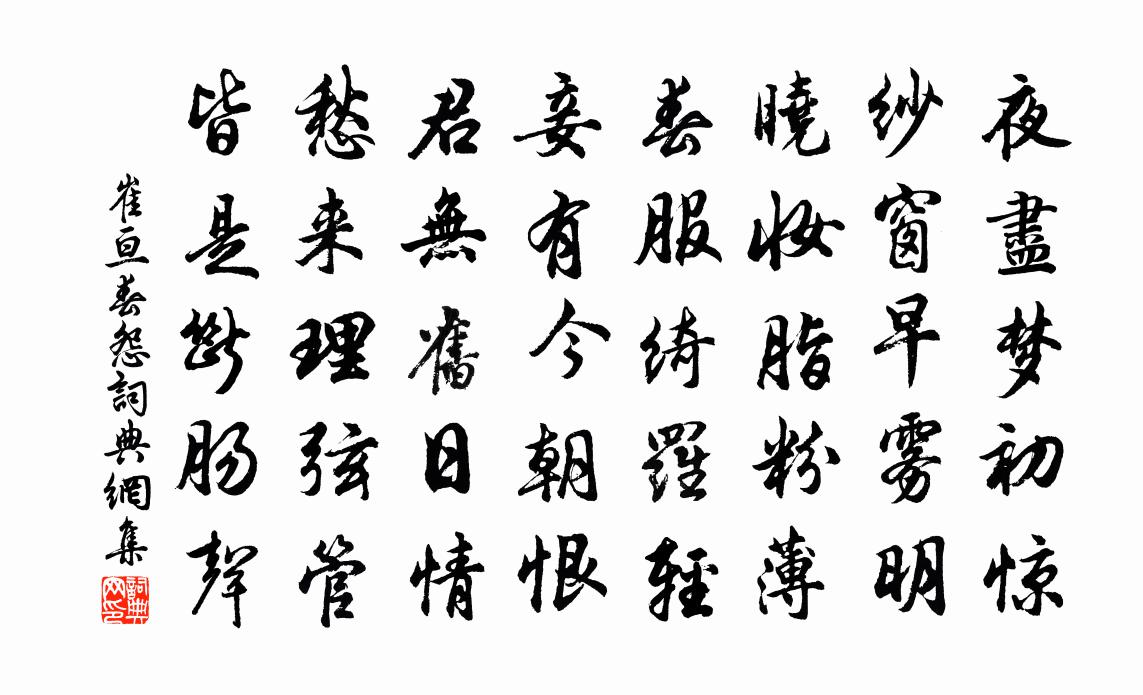 夜盡梦初惊
纱窗早雾明
曉妆脂粉薄
春服绮羅輕
妾有今朝恨
君無舊日情
愁来理弦管
皆是断肠聲
崔亘春怨詞典網集
詞典网印